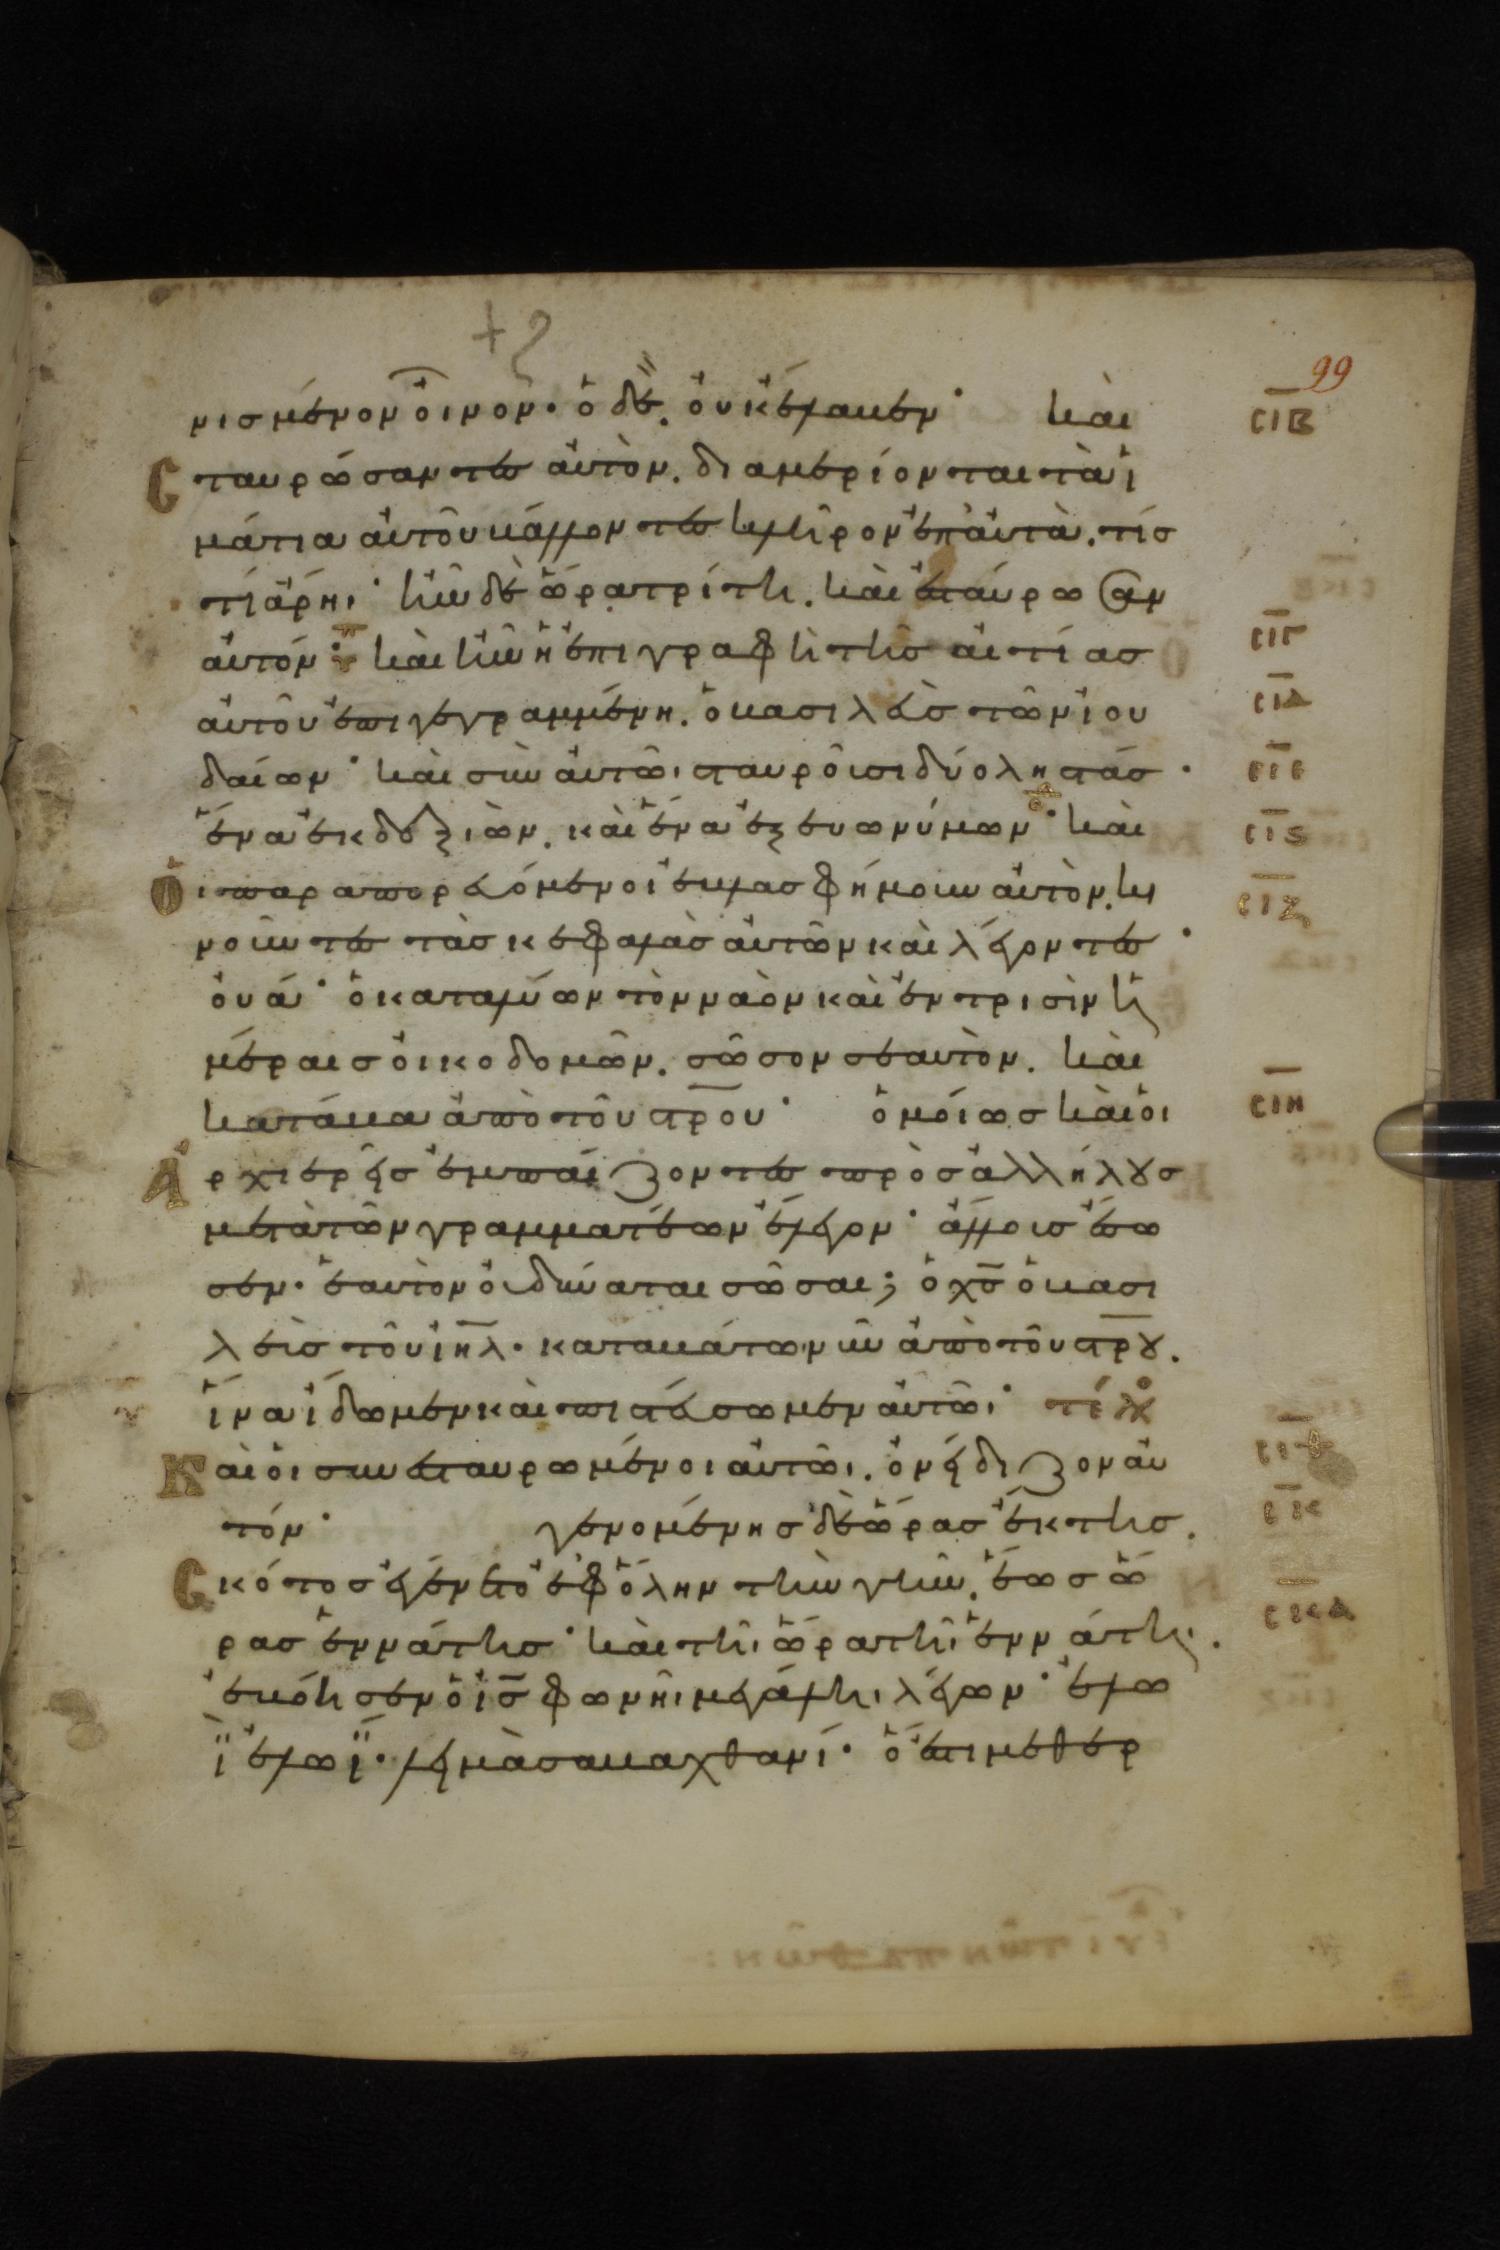 99
νισμένον οἶνον· ὁ δὲ. οὐκ ἔλαβεν· καὶ
σταυρώσαντες αὐτὸν. διαμερίονται τὰ ἱ
μάτια αὐτοῦ βάλλοντες κλῆρον ἐπ' αὐτὰ. τίσ
τί ἄρηι· ἦν δὲ ὥρα τρίτη. καὶ ἐσταύρωσαν
αὐτόν· καὶ ἦν ἡ ἐπιγραφὴ τῆσ αἰτίασ
αὐτοῦ ἐπιγεγραμμένη. ὁ βασιλεὺσ τῶν ἰου
δαίων· καὶ σὺν αὐτῶι σταυροῦσι δύο ληστάσ·
ἕνα ἐκ δεξιῶν. καὶ ἕνα ἐξ ευωνύμων· καὶ
ὁι παραπορευόμενοι ἐβλασφήμουν αὐτὸν. κι
νοῦντες τὰσ κεφαλὰσ αὐτῶν καὶ λέγοντες·
οὐά· ὁ καταλύων τὸν ναὸν καὶ ἐν τρισὶν ἡ
μέραισ οἰκοδομῶν. σῶσον σεαυτὸν. καὶ
κατάβα ἀπὸ τοῦ στρου· ὁμοίωσ καὶ οἱ
ἀρχιερεῖσ ἐμπαίζοντες πρὸσ ἀλλήλουσ
μετὰ τῶν γραμματέων ἔλεγον· ἄλλουσ ἔσω
σεν· ἑαυτὸν οὐ δύναται σῶσαι; ὁ χσ ὁ βασι
λεὺσ τοῦ ιηλ· καταβάτω νῦν ἀπὸ τοῦ στρου.
ἵνα ἴδωμεν καὶ πιστεύσωμεν αὐτῶι· τέλος
Καὶ οἱ συνεσταυρωμένοι αὐτῶι. ὀνείδιζον αὐ
τόν· γενομένησ δὲ ὥρασ ἕκτησ.
σκότοσ ἐγένετο ἐφ' ὅλην τὴν γῆν. ἕωσ ὥ
ρασ ἐννάτησ· καὶ τῆι ὥρα τῆι ἐννάτηι.
ἐβόησεν ὁ ισ φωνῆι μεγάληι λέγων· ἐλω
ῒ ἐλωῒ· λειμὰ σαβαχθανί· ὅ ἐστι μεθερ
σιβ
σιγ
σιδ
σιε
σις
σιζ
σιη
σιθ
σκ
σκα